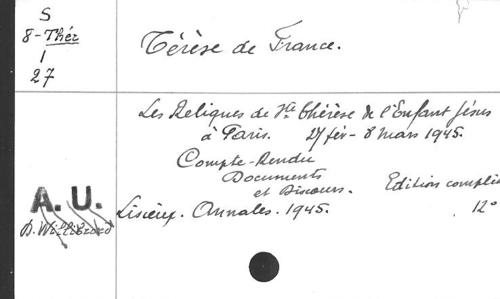 S
8-Thér
1
27
Térèse de France.
Les Reliques de Ste Thérèse de l'Enfant Jésus
à Paris. 27 fév - 8 mars 1945.
Compte-Rendu
Documents
et Discours. Edition complèt
Lisieux. Annales. 1945. 12°
A. U.
D. Willibrord